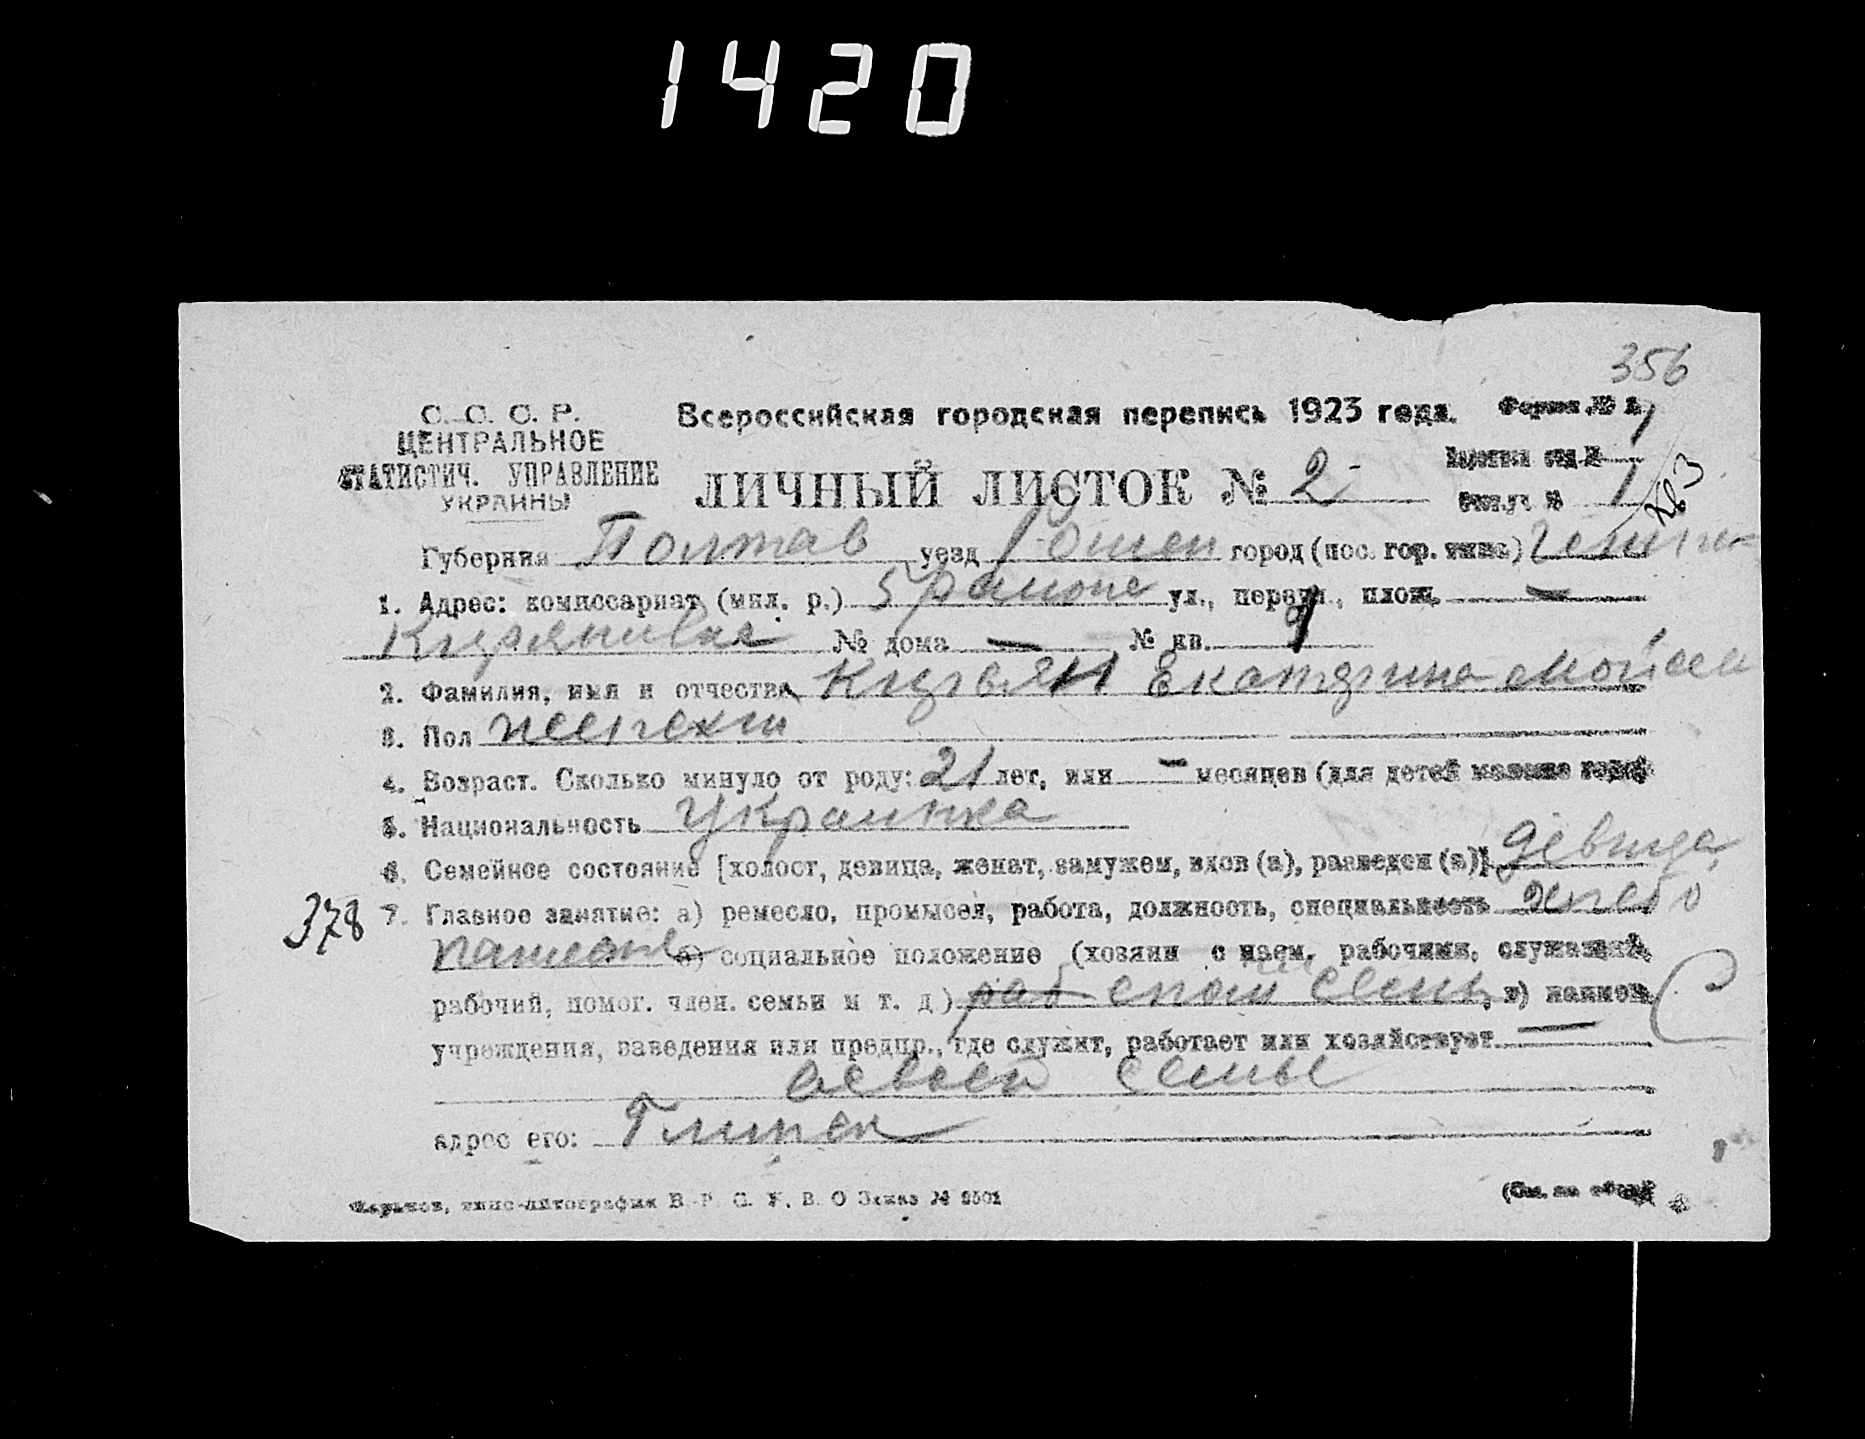 1420
356
С. С. С. Р.
ЦЕНТРАЛЬНОЕ
СТАТИСТИЧ. УПРАВЛЕНИЕ
УКРАИНЫ
Всероссийская городская перепись 1923 года. Форма № 1
ЛИЧНЫЙ ЛИСТОК № 2
1
кв 3
Губерния Полтав уезд Ромен город (пос. гор. типа)
1. Адрес: комиссариат (мил. р.) 5 района ул., переул., площ. —
№ дома — № кв.
2. Фамилия, имя и отчество Екатерина Моисеи
3. Пол женский
4. Возраст. Сколько минуло от роду: 21 лет, или — месяцев (для детей моложе года)
5. Национальность Украинка
6. Семейное состояние [холост, девица, женат, замужем, вдов (а), разведен (а)] девица
378 7. Главное занятие: а) ремесло, промысел, работа, должность, специальность хлебо
пашество б) социальное положение (хозяин с наем. рабочими, служащий,
рабочий, помог. член. семьи и т. д.) раб в своей семьи, в) наимен.
учреждения, заведения или предпр., где служит, работает или хозяйствует —
в своей семье
адрес его: Глинск
Харьков, типо-литография В. У. С. Заказ №
(См. на обор.)